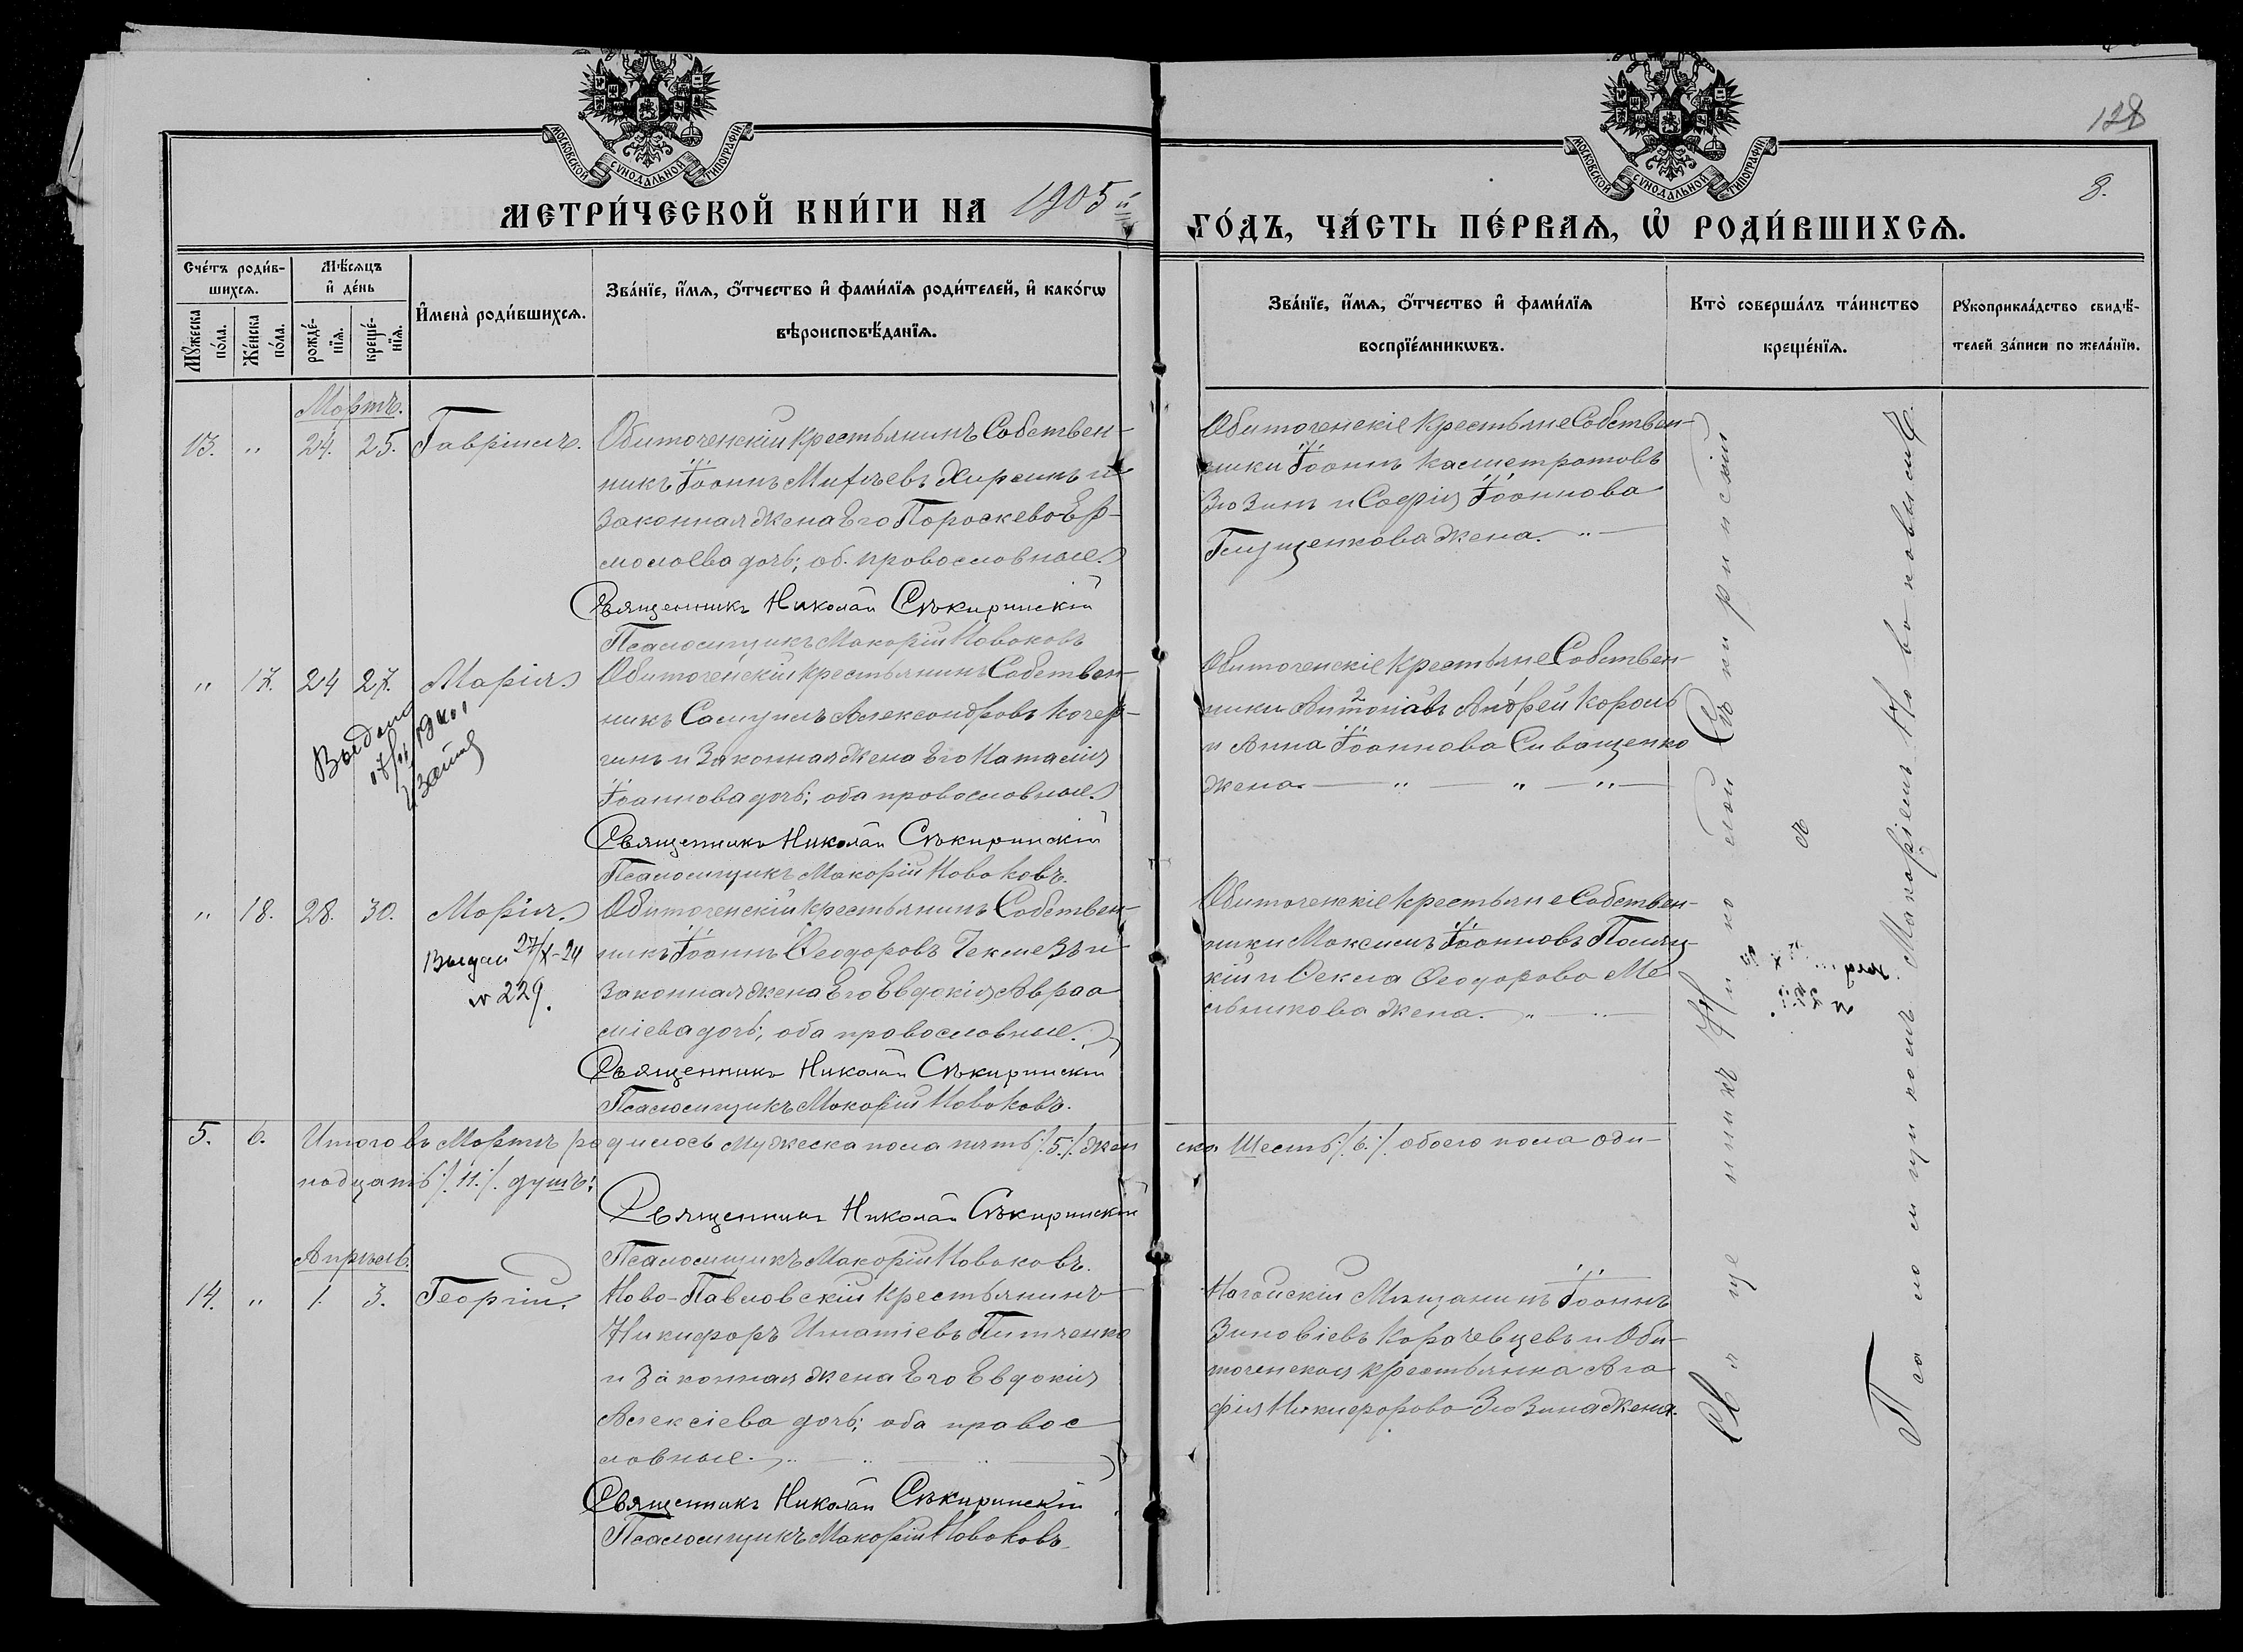 МОСКОВСКОЙ СѴНОДАЛЬНОЙ ТИПОГРАФІИ
МОСКОВСКОЙ СѴНОДАЛЬНОЙ ТИПОГРАФІИ
128
8.
МЕТРИ́ЧЕСКОЙ КНИ́ГИ НА 1905 й ГО́ДЪ, ЧА́СТЬ ПЕ́РВАѦ, Ѡ РОДИ́ВШИХСѦ.
Сче́тъ роди́в-
шихсѧ.
Мꙋ́жеска по́ла.
Же́нска по́ла.
Мѣ́сѧцъ
и де́нь
рожде́-
нїѧ.
креще́-
нїѧ.
И҆мена̀ роди́вшихсѧ.
Зва́нїе, и҆́мѧ, ѻ҆́тчество и҆ фами́лїѧ роди́телей, и҆ како́гѡ
вѣроисповѣ́данїѧ.
Зва́нїе, и҆́мѧ, ѻ҆́тчество и҆ фами́лїѧ
воспрїе́мникѡвъ.
Кто̀ соверша́лъ та́инство
креще́нїѧ.
Рꙋкоприкла́дство свидѣ́-
телей за́писи по жела́нїю.
Мартъ.
13. " 24. 25. Гавріилъ. Обиточенскій крестьянинъ Собствен-
никъ Іоаннъ Хирсинъ и
законная жена Его Параскева Ер-
молаева дочь; об. православные.
Священникъ Николай Сѣкиринскій
Псаломщикъ Макарій Новаковъ
Обиточенскіе крестьяне Собствен-
ники Іоаннъ Калистратовъ
Зюзинъ и Софія Іоаннова
Глущенкова жена. "
" 17. 24 27. Марія. Обиточенскій крестьянинъ Собствен-
никъ Самуилъ Александровъ Кочер-
гинъ и законная жена Его Наталія
Іоаннова дочь; оба православные.
Священникъ Николай Сѣкиринскій
Псаломщикъ Макарій Новаковъ.
Выдана
Обиточенскіе крестьяне Собствен-
ники Андрей Король
и Анна Іоаннова Сиващенко
жена. " " "
" 18. 28. 30. Марія. Обиточенскій крестьянинъ Собствен-
никъ Іоаннъ Ѳеодоровъ Чекмезъ и
законная жена Его Евдокія Авраа
міева дочь; оба православные.
Священникъ Николай Сѣкиринскій
Псаломщикъ Макарій Новаковъ.
Выдан 27/X-24
№ 229.
Обиточенскіе крестьяне Собствен-
ники Максимъ Іоанновъ Поляц-
кій и Ѳекла Ѳеодорова Ме
льникова жена. "
5. 6. Итого въ Мартѣ родилось мужеска пола пять /.5./. жен ска Шесть /.6./. обоего пола оди-
надцать /.11./. душъ:
Священникъ Николай Сѣкиринскій
Псаломщикъ Макарій Новаковъ.
Апрѣль.
14. " 1. 3. Георгій. Ново-Павловскій крестьянинъ
Никифоръ Игнатіевъ Питченко
и законная жена Его Евдокія
Алексіева дочь; оба правос
лавные.
Священникъ Николай Сѣкиринскій
Псаломщикъ Макарій Новаковъ.
Ногайскій Мѣщанинъ Іоаннъ
Зиновіевъ Карачевцевъ и Оби-
точенская крестьянка Ага
фія Никифорова Зюзина жена.
Священникъ Николай Сѣкиринскій
съ
Псаломщикомъ Макаріемъ Новаковымъ.